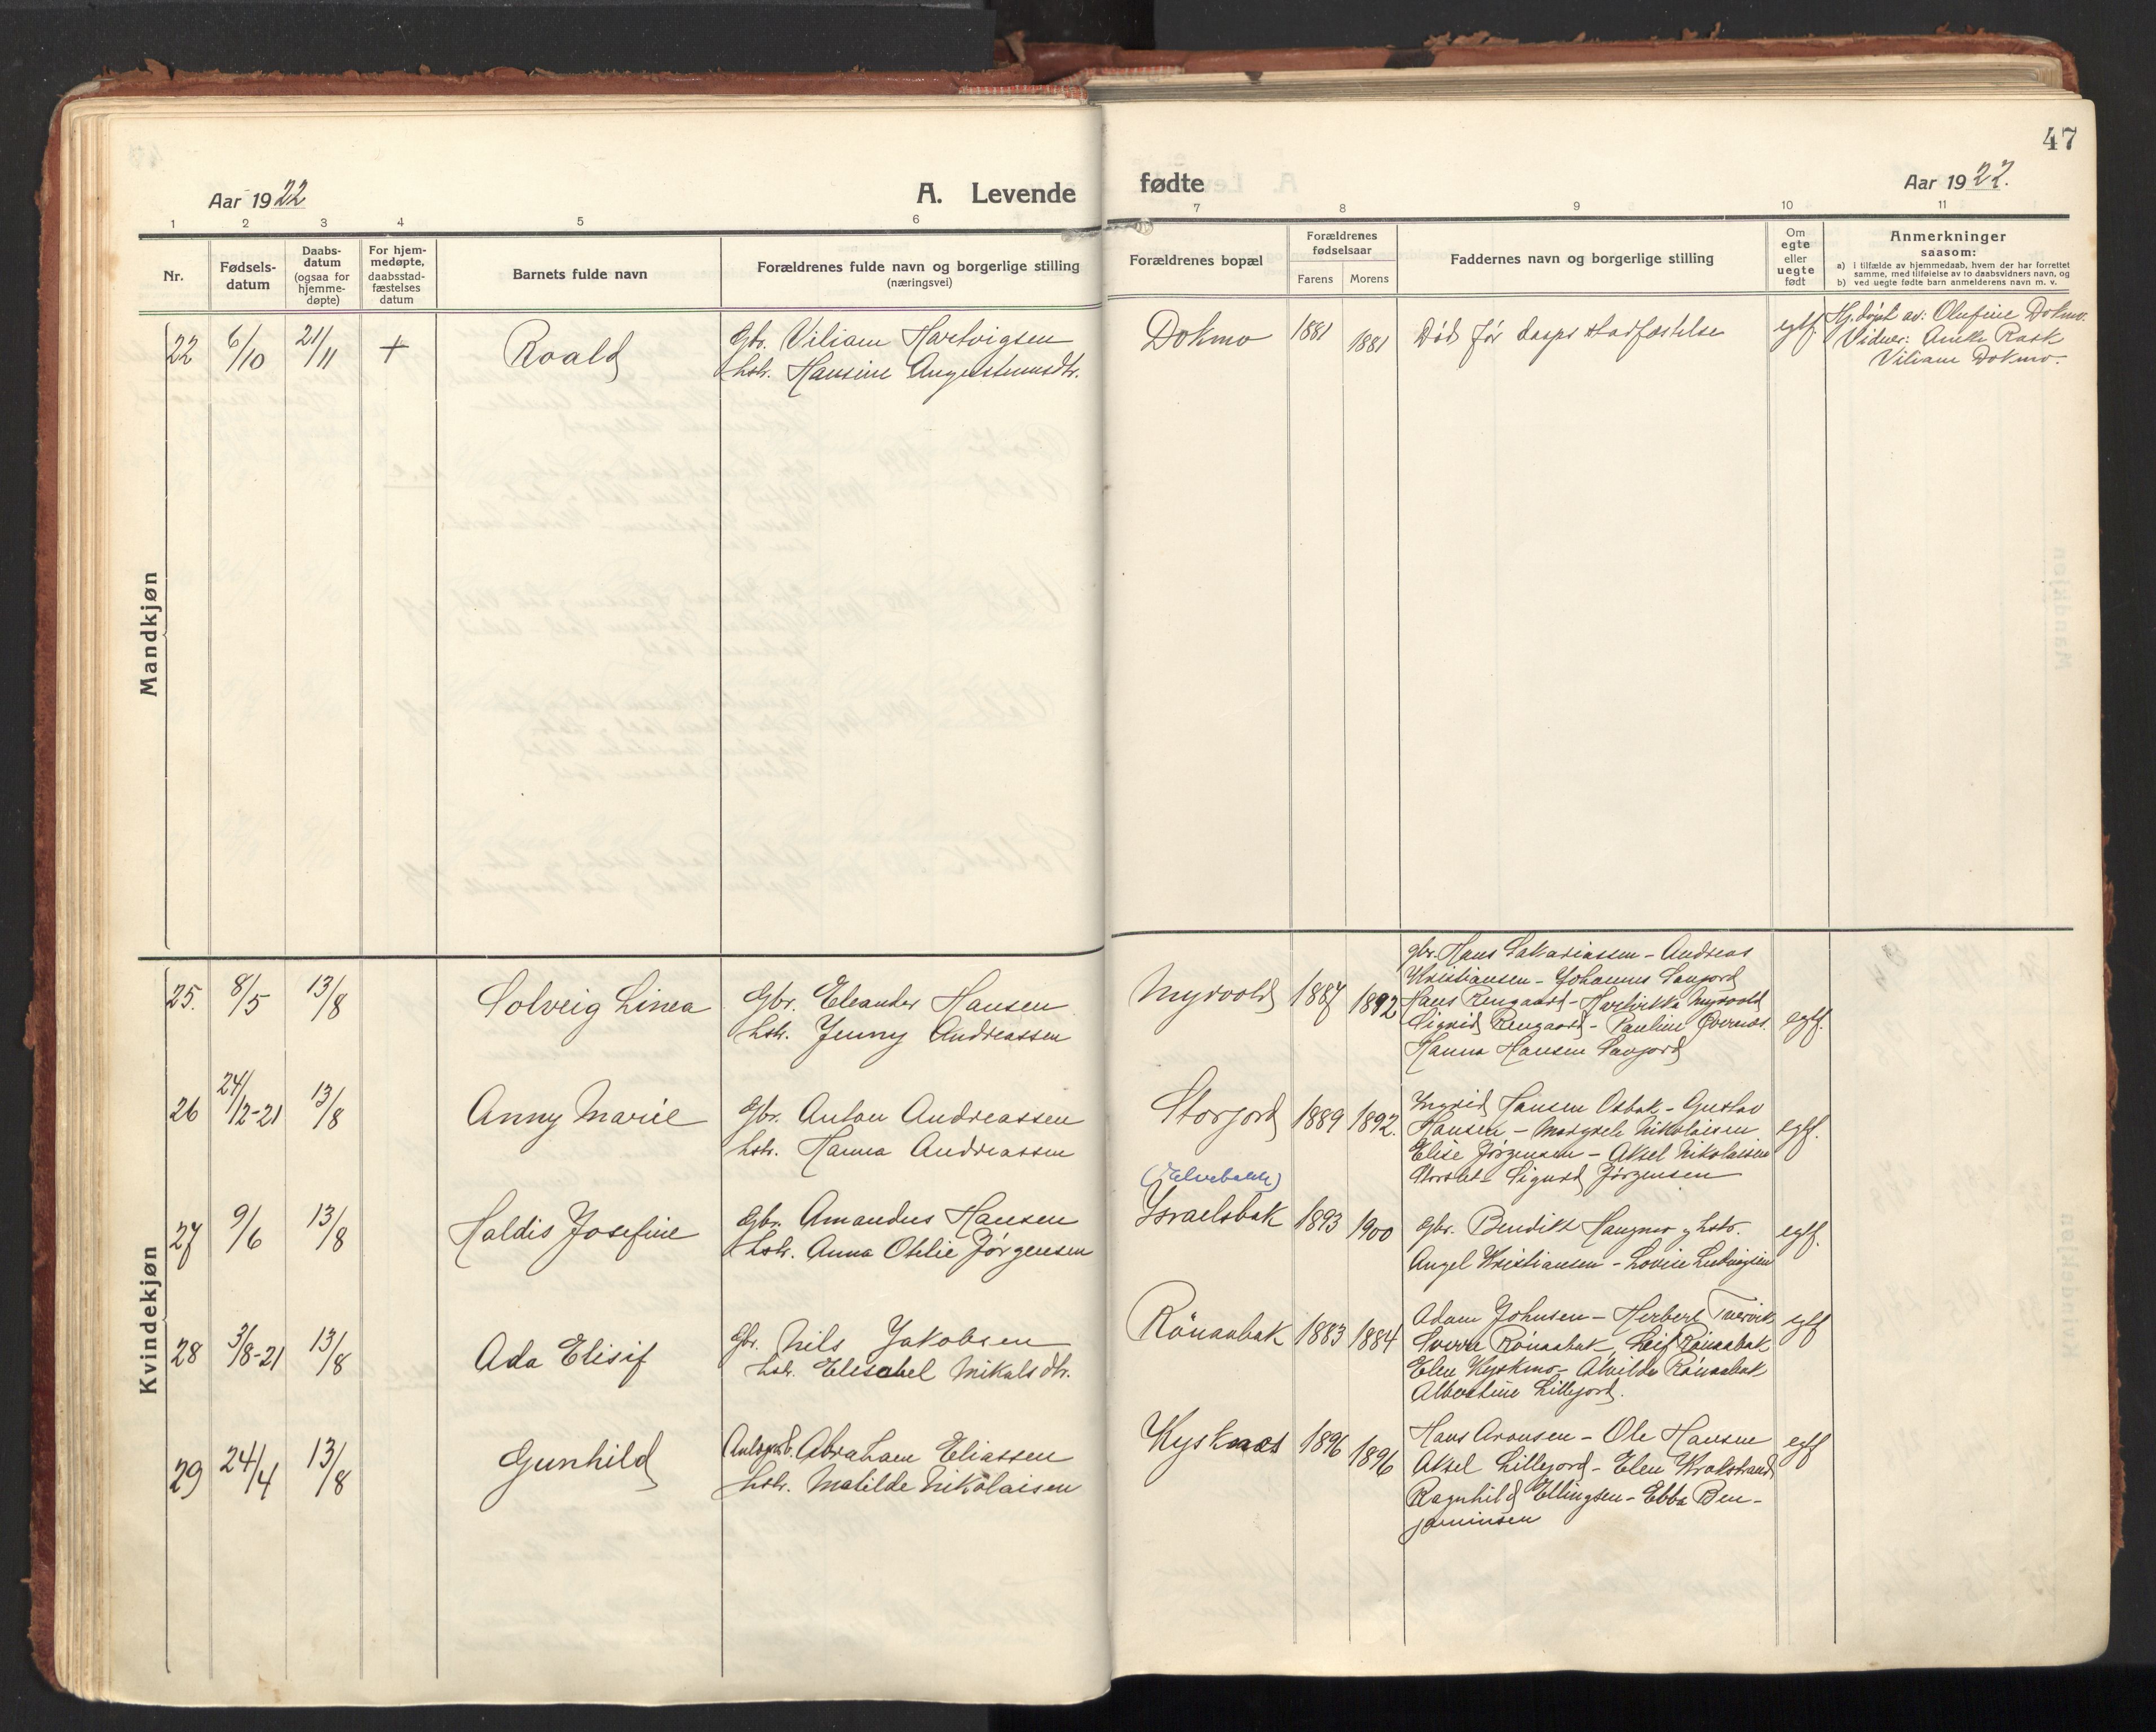 47
Aar 1922
A. Levende
fødte
Aar 1922.
1 2 3 4 5 6 7 8 9 10 11
Nr.
Fødsels-
datum
Daabs-
datum
(ogsaa for
hjemme-
døpte)
For hjem-
medøpte,
daabsstad-
fæstelses
datum
Barnets fulde navn
Forældrenes fulde navn og borgerlige stilling
(næringsvei)
Forældrenes bopæl
Forældrenes
fødselsaar
Farens Morens
Faddernes navn og borgerlige stilling
Om
egte
eller
uegte
født
Anmerkninger
saasom:
a) i tilfælde av hjemmedaab, hvem der har forrettet
samme, med tilføielse av to daabsvidners navn, og
b) ved uegte fødte barn anmelderens navn m. v.
Mandkjøn
22 6/10 21/11 + Roald
Gbr. Viliam Hartvigsen
hstr. Hansine Augustinusdtr.
Dokmo 1881 1881
Død før daaps stadfæstelse
egtf.
Hj.døpt av: Olufine Dokmo.
Vidner: Anette Rask
Viliam Dokmo.
Kvindekjøn
25. 8/5 13/8 Solveig Linea
Gbr. Eleander Hansen
hstr. Jenny Andreassen
Myrvold 1887 1892
gbr. Hans Sakariassen - Andreas
Kristiansen - Johannes Saujord
Hans Rengaard - Hartvikka Myrvold
Sigrid Rengaard - Pauline Øvernes.
Hanna Hansen Saujord
egtf.
26 24/12-21 13/8 Anny Marie
Gbr. Anton Andreassen
hstr. Hanna Andreassen
Storjord 1889 1892.
Ingrid Hansen Osbak - Gustav
Hansen - Margrete Nikolaisen
Elise Jørgensen - Aksel Nikolaisen
Sigurd Jørgensen
egtf.
27 9/6 13/8 Haldis Josefine
Gbr. Amandus Hansen
hstr. Anna Otelie Jørgensen
Israelsbak 1893 1900
Gbr. Bendikt Haugmo og hstr.
Angel Kristiansen - Lovise Ludvigsen
egtf.
28 3/8-21 13/8 Ada Elisif
Gbr. Nils Jakobsen
hstr. Elisabel Mikalsdtr.
Rönaabak 1883 1884
Adam Johnsen - Herbert Tvervik
Sverre Rönaabak Leif Rönaabak
Elen Kyskmo - Alvilda Rönaabak
Albertine Lillejord.
egtf
29 24/4 13/8 Gunhild
Abraham Eliassen
hstr. Matilde Nikolaisen
Kysknes 1896 1896
Hans Aronsen - Ole Hansen
Aksel Lillejord - Elen Krokstrand
Ragnhild Ellingsen - Ebba Ben-
jaminsen
egtf